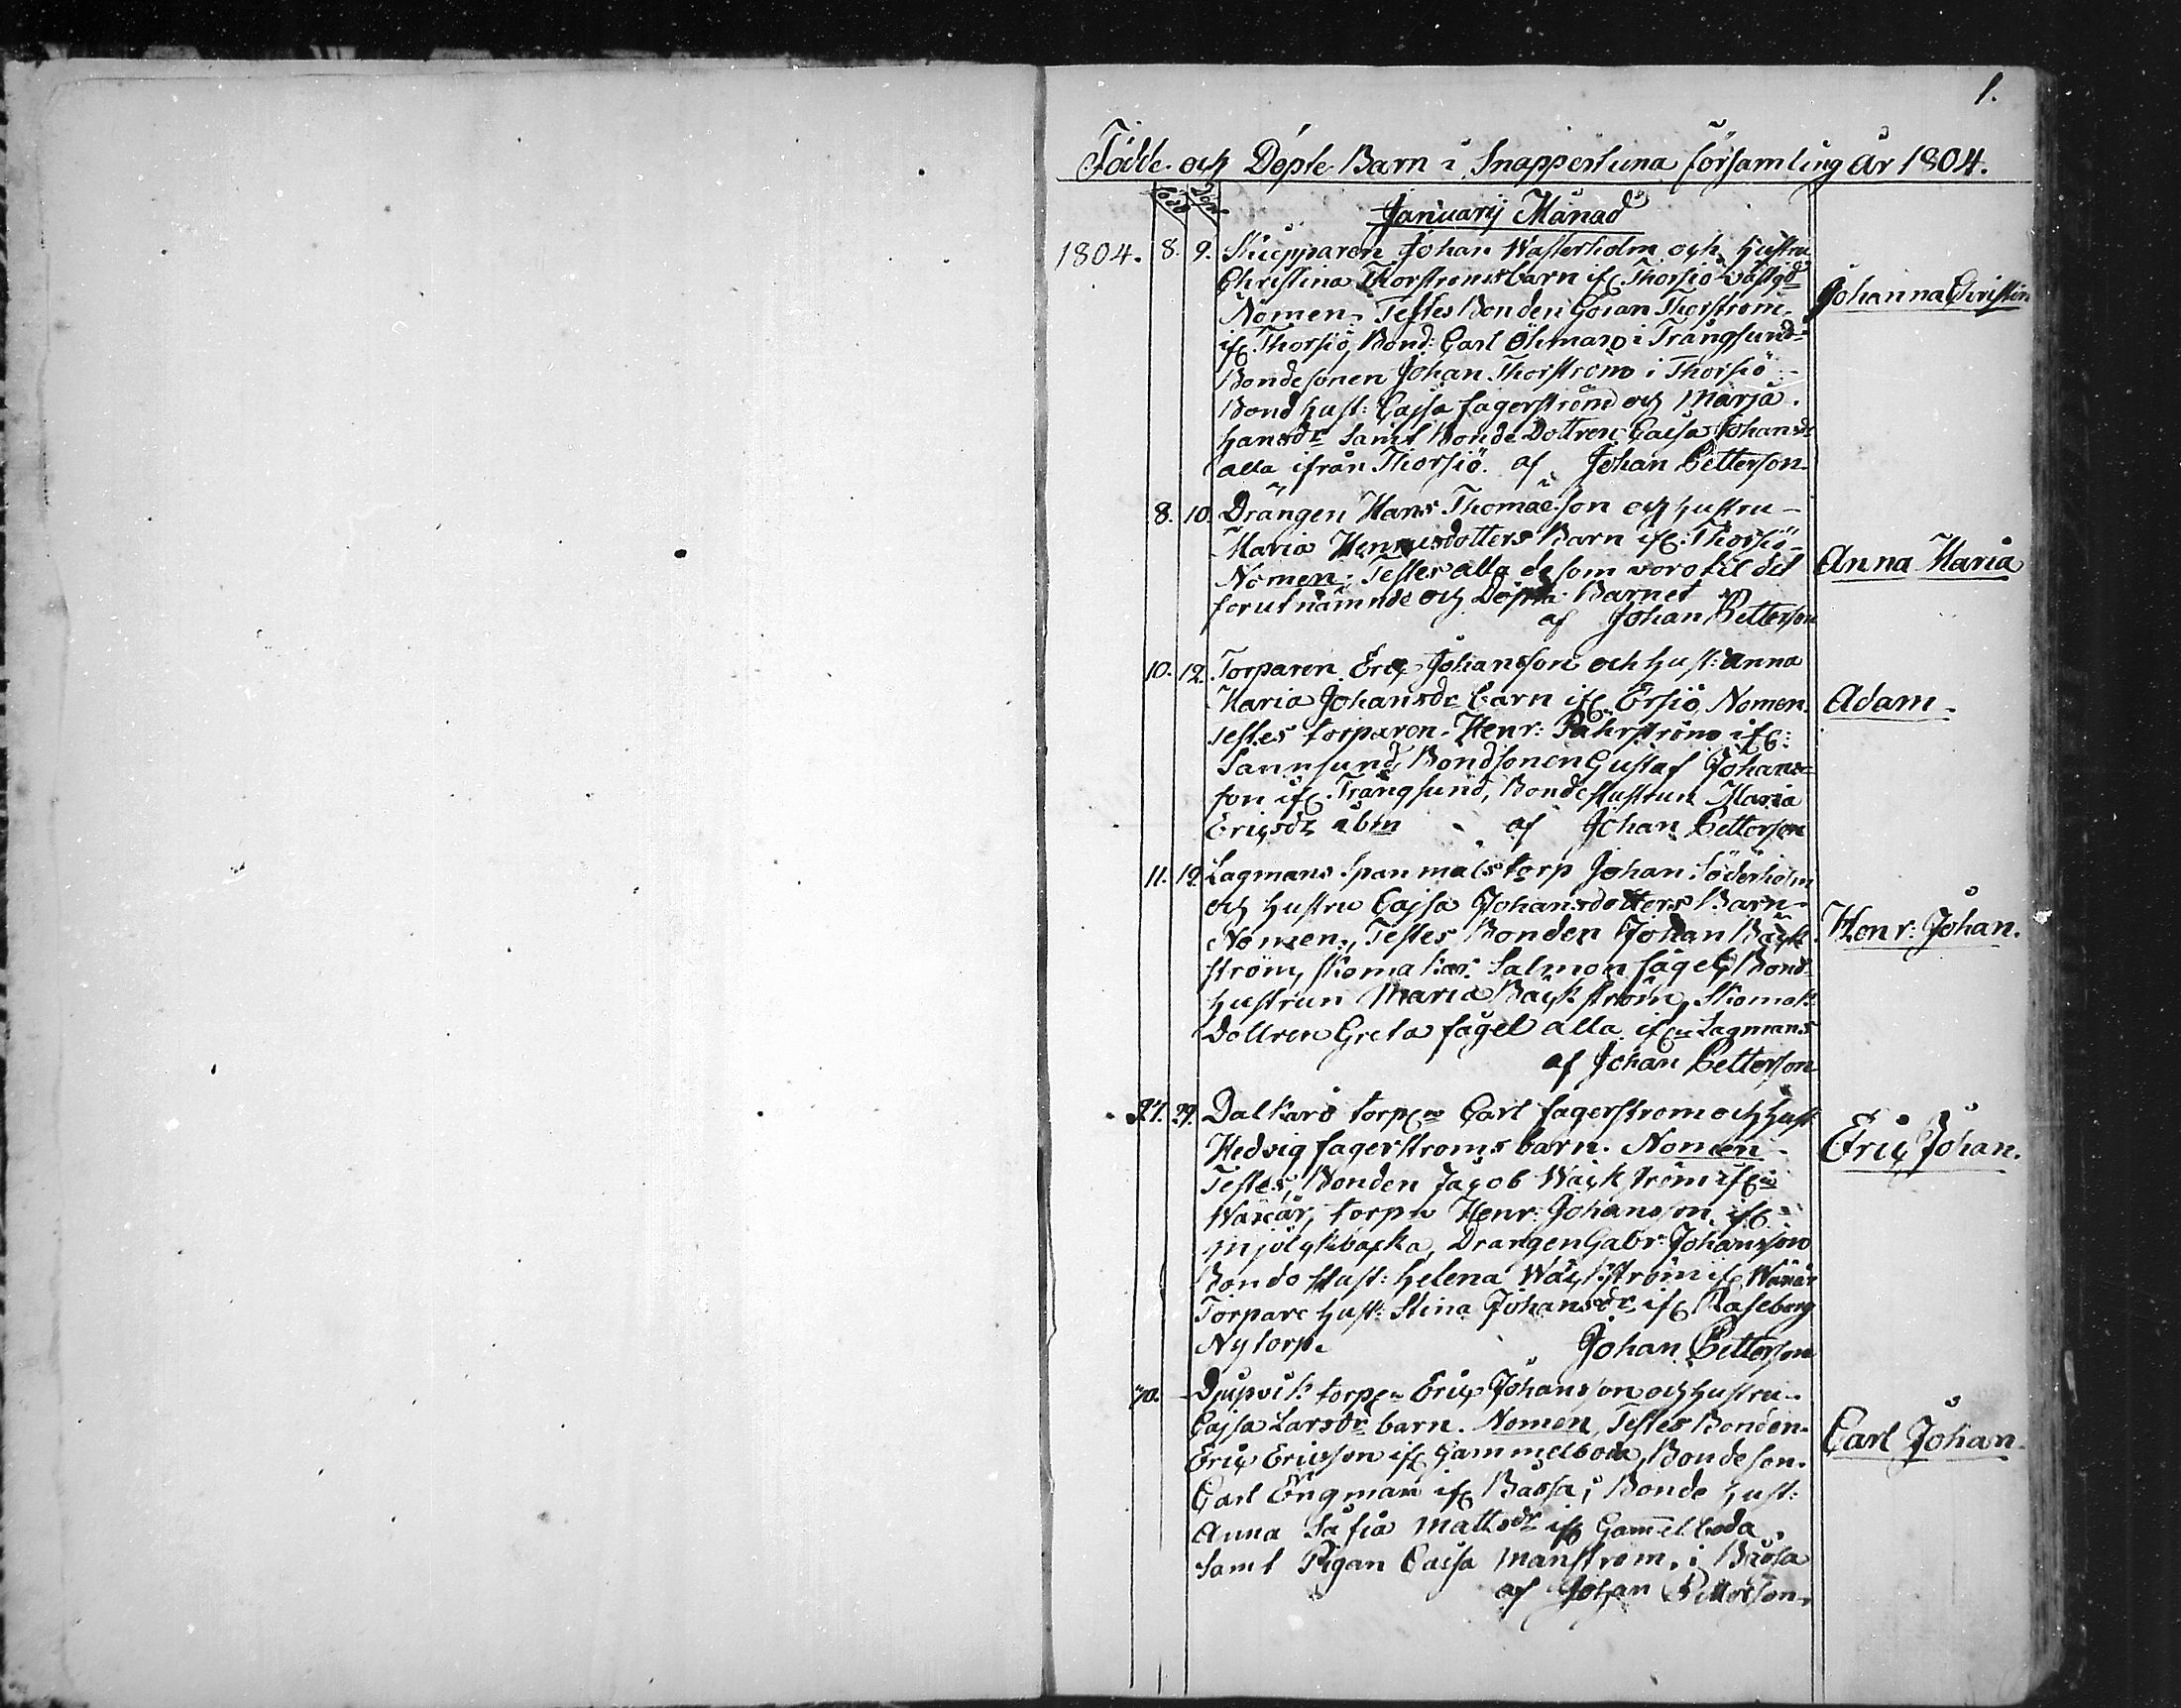 1.
Födde och Döpte Barn i Snappertuna församling år 1804.
Född Döpt
Januarij Månad
1804. 8. 9. Skiepparen Johan Wasterholm och hustru
Christina Thorstroms barn if. Thorsiö
Johanna Christin
Nomen. Testes Bonden Göran Thorstrom
if. Thorsiö, Bond: Carl Öhman i Trångsund
Bondesonen Johan Thorström i Thorsiö
Bond hust: Cajsa fagerström och Maria
hansdr samt Bonde Dottren Caisa Johansdr
alla ifrån Thorsiö. af Johan Petterson
8. 10. Drängen Hans Thomaeson och hustru
Maria Henricsdotters Barn if. Thorsiö
Nomen. Testes alla de som voro til det
Anna Maria
förutnämnde och Döpta Barnet
af Johan Petterson
10. 12. Torparen Eric Johansson och hust: Anna
Maria Johansdr barn if. Ersiö, Nomen.
Adam.
Testes torparen Henr: if:
Sannsund, Bondsonen Gustaf Johans
son if. Trångsund, Bondehustrun Maria
Ericsdr ibm af Johan Petterson
11. 12. Lagmans Spanmåls torp Johan Söderholm
och hustru Cajsa Johansdotters Barn
Nomen., Testes Bonden Johan Bäck
Henr: Johan.
ström, skomakar Salmon fågel, Bond
hustrun Maria Bäckström, Skomak
Dottren Greta fågel alla if. Lagmans
af Johan Petterson
27. 29. Dalkarö torp. Carl fagerstrom och hust
Hedvig fagerstroms barn. Nomen
Eric Johan.
Testes, Bonden Jacob Wäckström if
Wäxär, torp Henr: Johansson if
mjölckbacka, Drängen Gabr: Johansson
Bonde Hust: Helena Wäckström if Wäxär
Torpare hust: Stina Johansdr if Raseborg
Nytorp. Johan Petterson
30. Djupvik torp Eric Johansson och hustru
Cajsa Larsdr barn. Nomen, Testes Bonden
Carl Johan.
Eric Ericsson if Gammelboda, Bondeson
Carl Engman if Båssa; Bonde hust:
Anna Safia Mattsdr if Gammelboda
samt Pigan Caisa Manström i Båssa
af Johan Petterson.